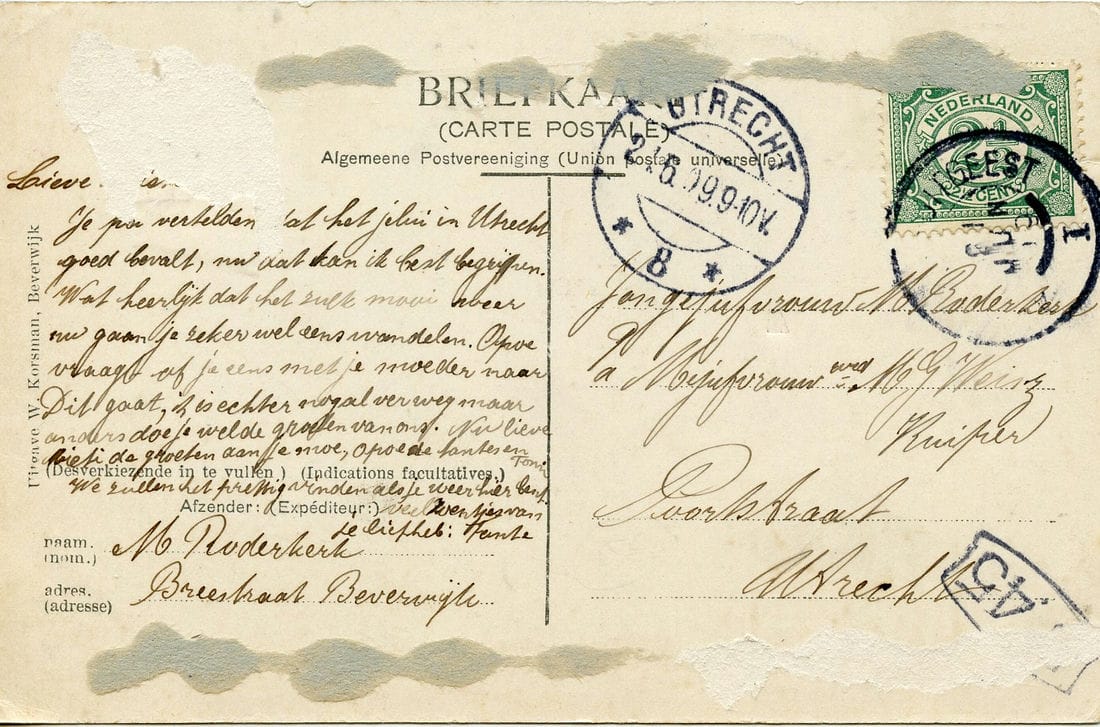 BRIEFKAA
(CARTE POSTALE)
Algemeene Postvereeniging (Union postale universelle)
UTRECHT
6.09.9-10V.
8
NEDERLAND
2½
CENT
GEEST
I
Uitgave W. Korsman, Beverwijk
Lieve
Je pa vertelden dat het jelui in Utrecht
goed bevalt, nu dat kan ik best begrijpen.
Wat heerlijk dat het zulk mooi weer
nu gaan je zeker wel eens wandelen. Opoe
vraagt of je eens met je moeder naar
Dit gaat, is echter nogal ver weg maar
anders doe je wel de groeten van ons. Nu lieve
de groeten aan je moe, opoe de tantes en
(Desverkiezende in te vullen) (Indications facultatives.)
We zullen het prettig vinden als je weer hier bent
Afzender: (Expéditeur:) Veel van
je liefheb: Tante
naam. (nom.) M Roderkerk
adres. (adresse) Breestraat Beverwijk
Jongejufvrouw M. Roderkerk
a Mejufvrouw wed M G
Kuiper
Poortstraat
Utrecht
45